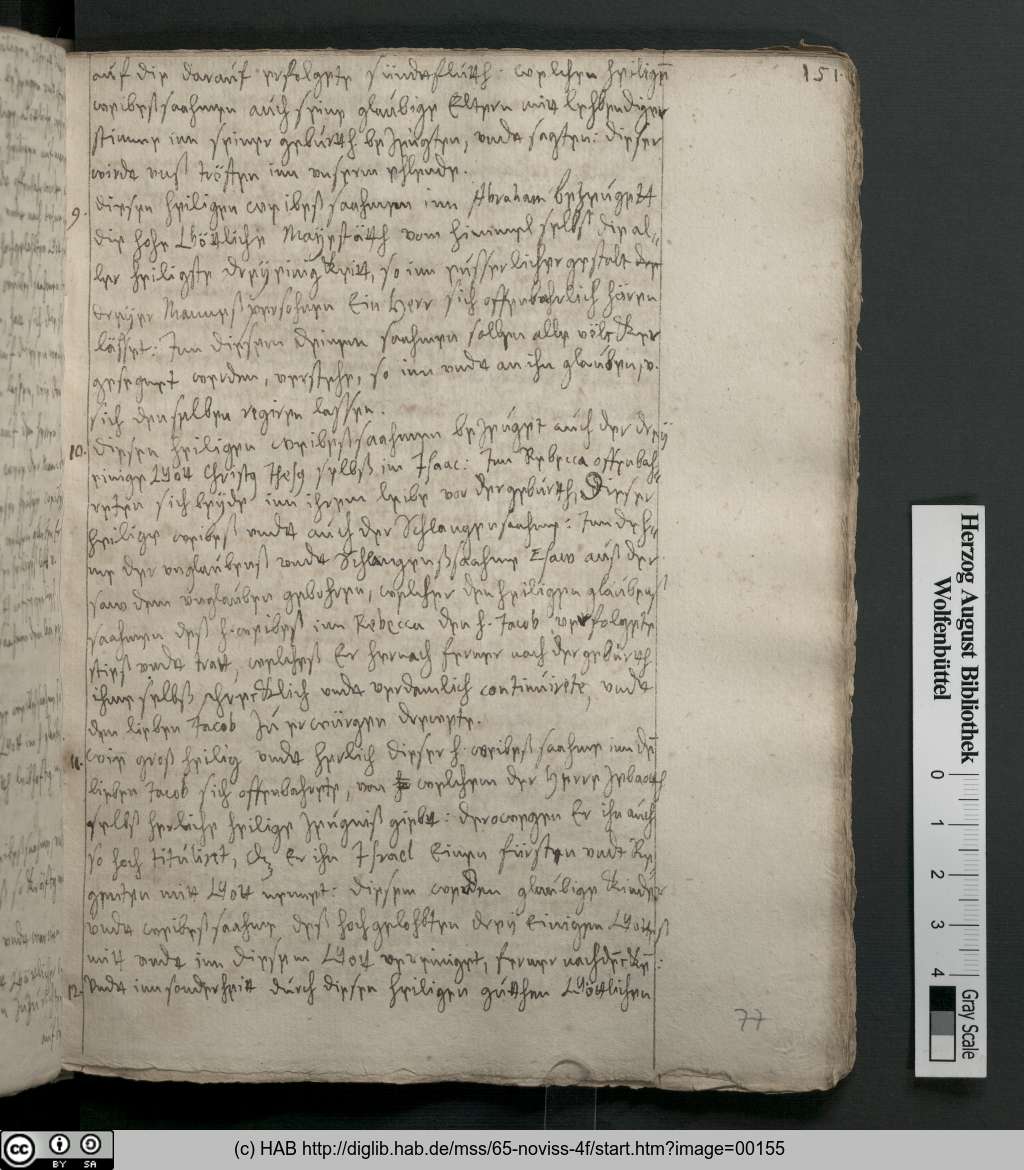 151.
auf die darauf erfolgete sündtfluth: welchen heiligē
weibeßsaahmen auch seine glaübige Eltern mitt lehbendiger
stimme inn seiner geburth bezeugten, undt sagten: dieser
wirdt unß trösten inn unserm ehlende.
9. diesen heiligen weibeßsaahmen inn Abraham bezeugett
die hohe Göttliche Mayestätth vom himmel selbß die al-
ler heiligste dreyeinigkeitt, so inn eusserlicher gestalt der
dreyer Mannesspersohnen Ein Herr sich offenbahrlich hören
lässet: Inn diesem deinem saahmen sollen alle völcker
gesegnet werden, verstehe, so inn undt an ihn glaüben, v.
sich denselben regiren lassen.
10. diesen heiligen weibeßsaahmen bezeuget auch der drey
einige Gott Christus Ihesus selbß im Isaac: Inn Rebecca offenbah-
reten sich beyde inn ihrem leibe vor der geburth, Dieser
heilige weibeß undt auch der Schlangensaahme: Inn deh-
me der unglaubenß undt Schlangenßsaahme Esaw auß der
saw dem unglauben gebohren, welcher den heiligen glaubens
saahmen deß h. weibeß inn Rebecca den h. Jacob verfolgete
stieß undt tratt, welcheß Er hernach ferner nach der geburth
ihme selbß schrecklich undt verdamlich continuirete, undt
den lieben Jacob zu erwürgen drewete.
11. Wie groß heilig undt herlich dieser h. weibeßsaahme inn dē
lieben Jacob sich offenbahrete, von welchem der Herre Zebaoth
selbß herliche heilige zeugniß giebt: derowegen Er ihn auch
so hoch tituliret, dz Er ihn Israel Einen fürsten undt Re
genten mitt Gott nennet: diesem werden glaübige Kinder
undt weibeßsaahme deß hochgelohbten drey Einigen Gottes
mitt undt inn diesem Gott vereiniget, ferner nachdencken:
12. Undt innsonderheitt durch diesen heiligen guthen Göttlichen
77
Herzog August Bibliothek
Wolfenbüttel
0 1 2 3 4
Gray Scale
cc BY SA
(c) HAB http://diglib.hab.de/mss/65-noviss-4f/start.htm?image=00155